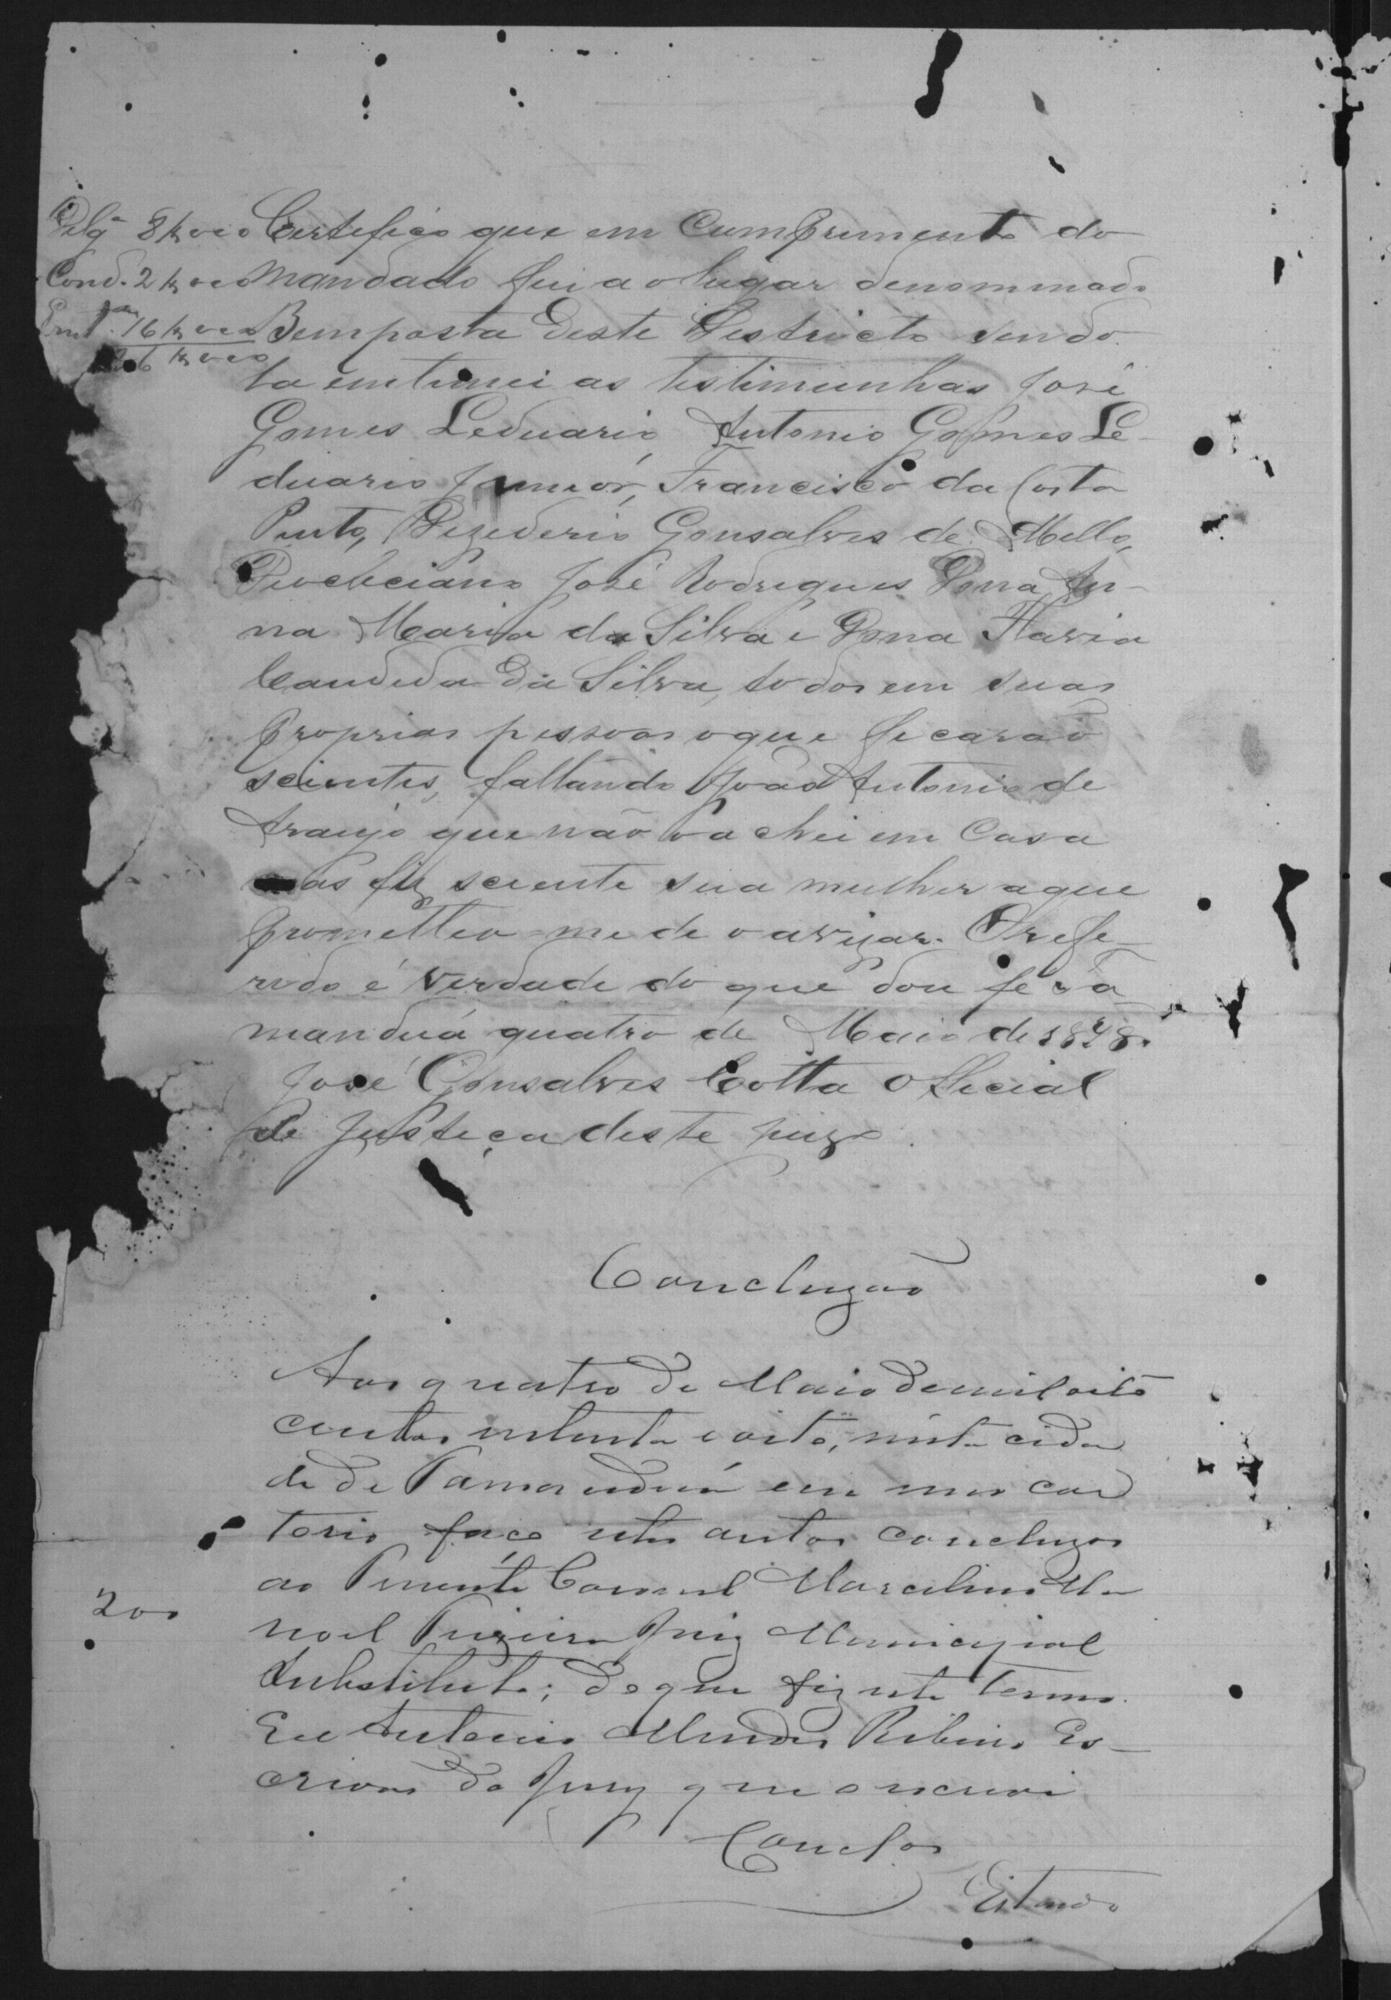 Delg.ª 8$000 Certefico que em Cumprimento do
Cond. 2$000 Mandado fui ao lugar denominado
16$000 Bemposta deste Destricto sendo
26$000
la emtimei as testimunhas José
Gomes Leduario, Antonio Gomes Le-
duario Juneór, Francisco da Costa
Pinto, Dezederio Gonsalves de Mello,
José Rodrigues Dona An-
na Maria da Silva e Dona Flavia
Candida da Silva, todos em suas
proprias pessoas o que ficarão
scientes, faltando João Antonio de
Araujo que não o achei em Casa
mas fiz sciente sua mulher a que
prometteo-me de o avizar. O refe-
rido é verdade do que dou fé Ta
manduá quatro de Maio de 1878.
José Gonsalves Cotta Oficial
de Justeça deste juizo.
Concluzão
Aos quatro de Maio de mil oito
centos setenta e oito, nesta cida
de de Tamanduá em meo car
torio faço estes autos concluzos
ao Tenente Coronel Marcelino Ma
200
noel Teixeira Juiz Municipal
Substituto; do que fiz este termo.
Eu Antonio Mendes Ribeiro Es-
crivão do Jury que o escrevi
Conclos